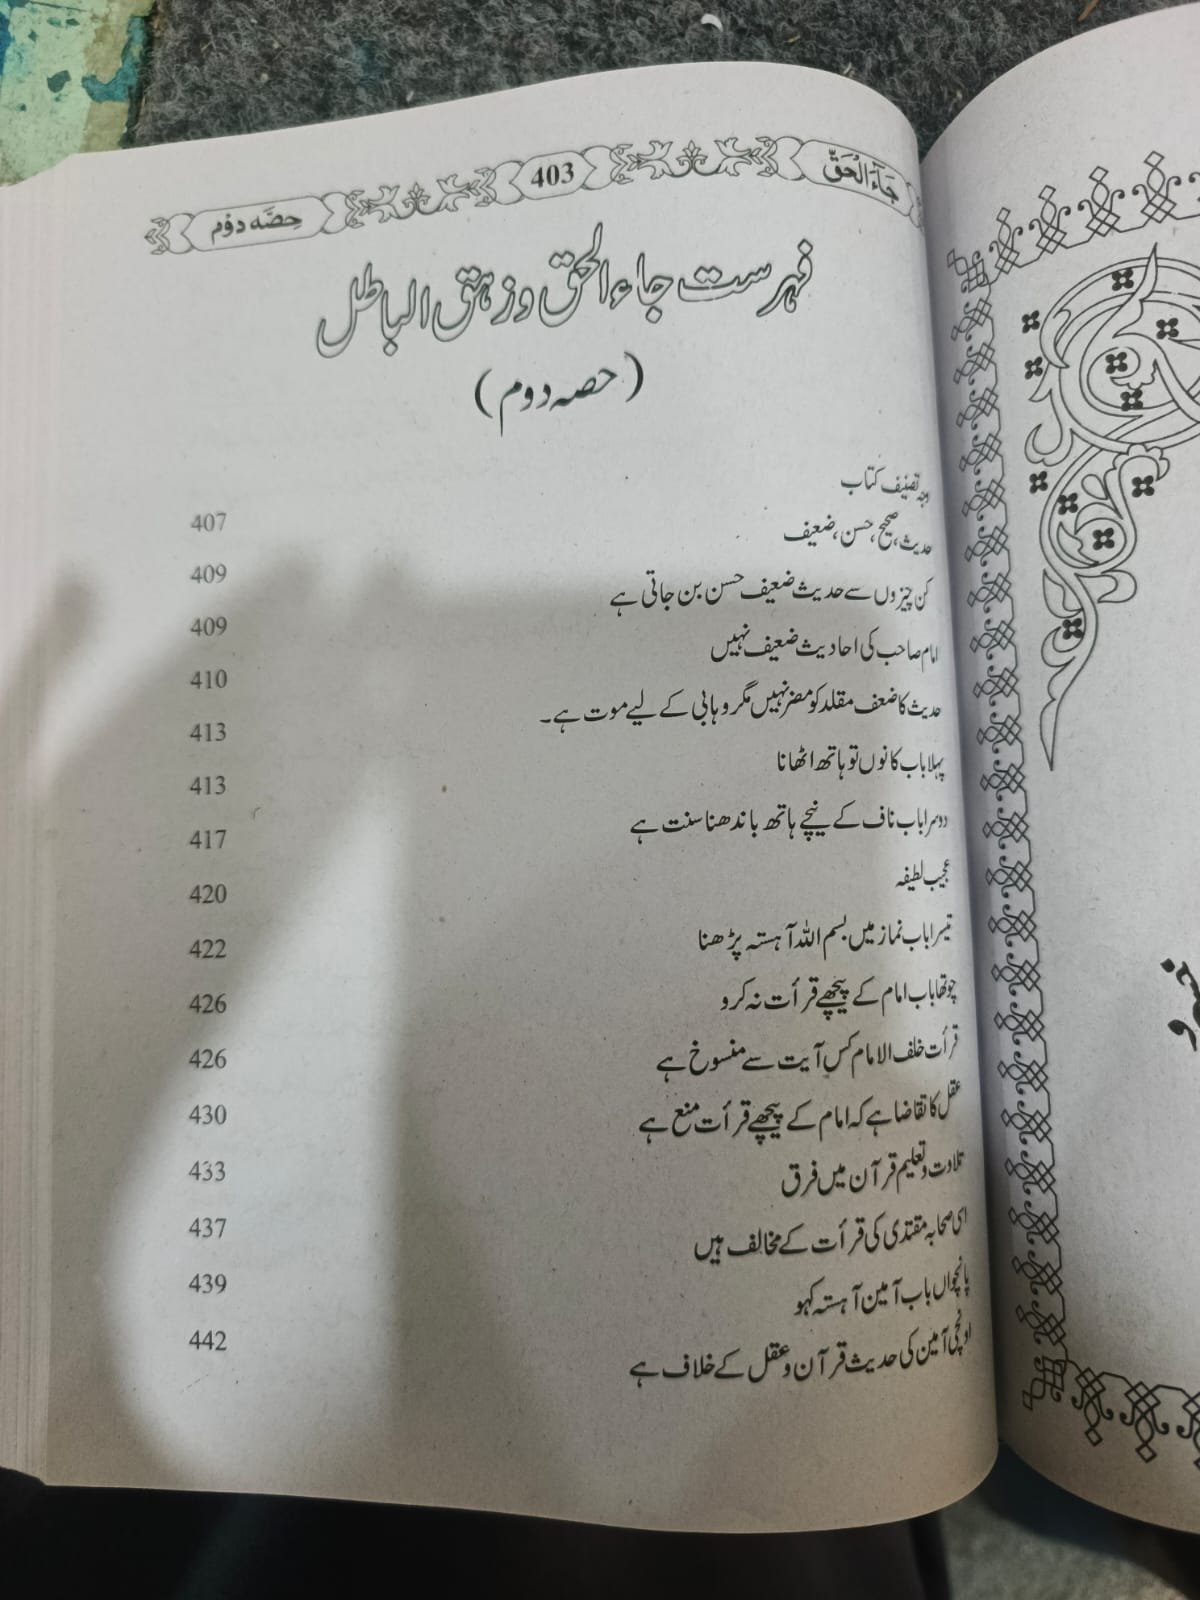 جَآءَ الْحَقّ 403 حِصَّه دوُم
فہرست جاء الحق وزہق الباطل
(حصہ دوم)
وجہ تصنیف کتاب 407
حدیث، صحیح، حسن، ضعیف 409
کن چیزوں سے حدیث ضعیف حسن بن جاتی ہے 409
امام صاحب کی احادیث ضعیف نہیں 410
حدیث کا ضعف مقلد کو مضر نہیں مگر وہابی کے لیے موت ہے۔ 413
پہلا باب کانوں تو ہاتھ اٹھانا 413
دوسرا باب ناف کے نیچے ہاتھ باندھنا سنت ہے 417
عجیب لطیفہ 420
تیسرا باب نماز میں بسم اللہ آہستہ پڑھنا 422
چوتھا باب امام کے پیچھے قرأت نہ کرو 426
قرأت خلف الامام کس آیت سے منسوخ ہے 426
عقل کا تقاضا ہے کہ امام کے پیچھے قرأت منع ہے 430
تلاوت و تعلیم قرآن میں فرق 433
اسی صحابہ مقتدی کی قرأت کے مخالف ہیں 437
پانچواں باب آمین آہستہ کہو 439
اونچی آمین کی حدیث قرآن و عقل کے خلاف ہے 442